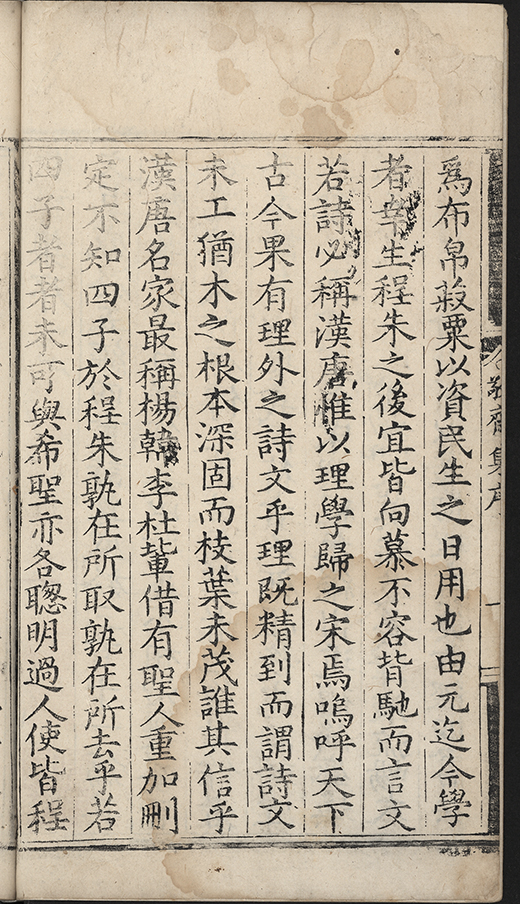 爲布帛菽粟以資民生之日用也由元迄今學
者幸生程朱之後宜皆向慕不容背馳而言文
若詩必稱漢唐惟以理學歸之宋焉嗚呼天下
古今果有理外之詩文乎理既精到而謂詩文
未工猶木之根本深固而枝葉未茂誰其信乎
漢唐名家最稱楊韓李杜軰借有聖人重加刪
定不知四子於程朱孰在所取孰在所去乎若
四子者者未可與希聖亦各聰明過人使皆程
敬齋集序
一